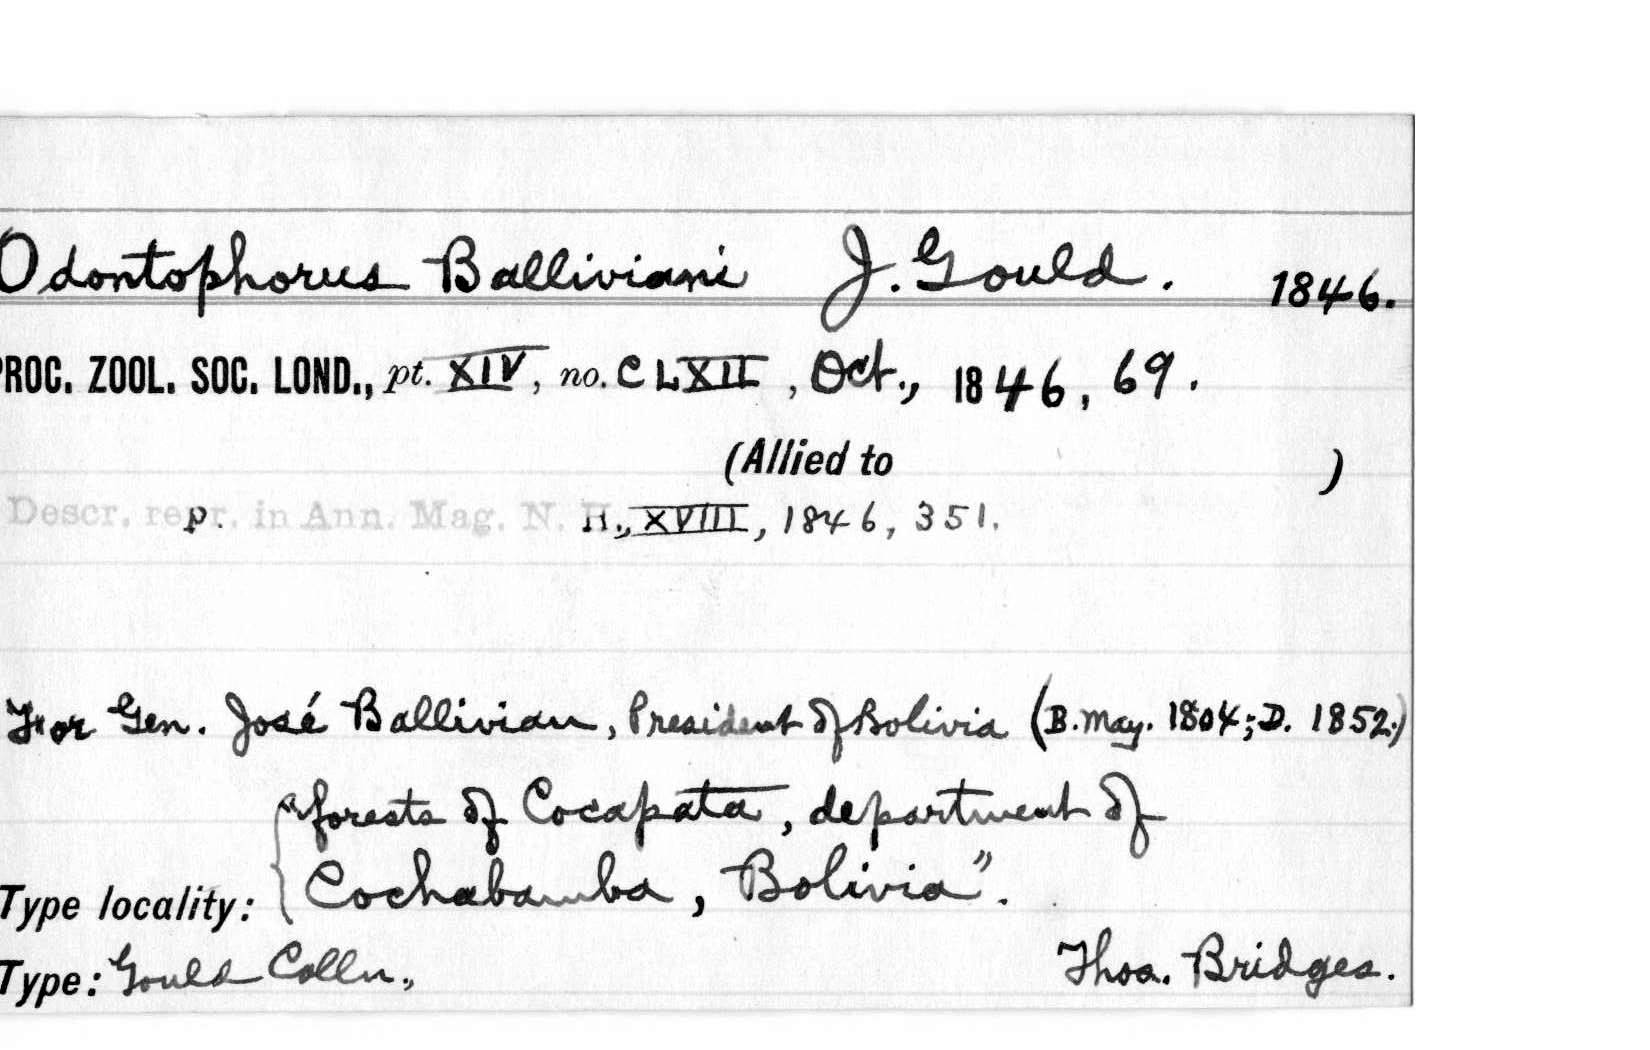 Odontophorus Balliviani J. Gould. 1846.
PROC. ZOOL. SOC. LOND., pt. XIV, no. CLXII, Oct., 1846, 69.
(Allied to )
Descr. repr. in Ann. Mag. N. H., XVIII, 1846, p. 351.
For Gen. José Ballivian, President of Bolivia (B. May. 1804; D. 1852.)
"forests of Cocapata, department of
Cochabamba, Bolivia".
Type locality:
Type: Gould Colln., Thos. Bridges.